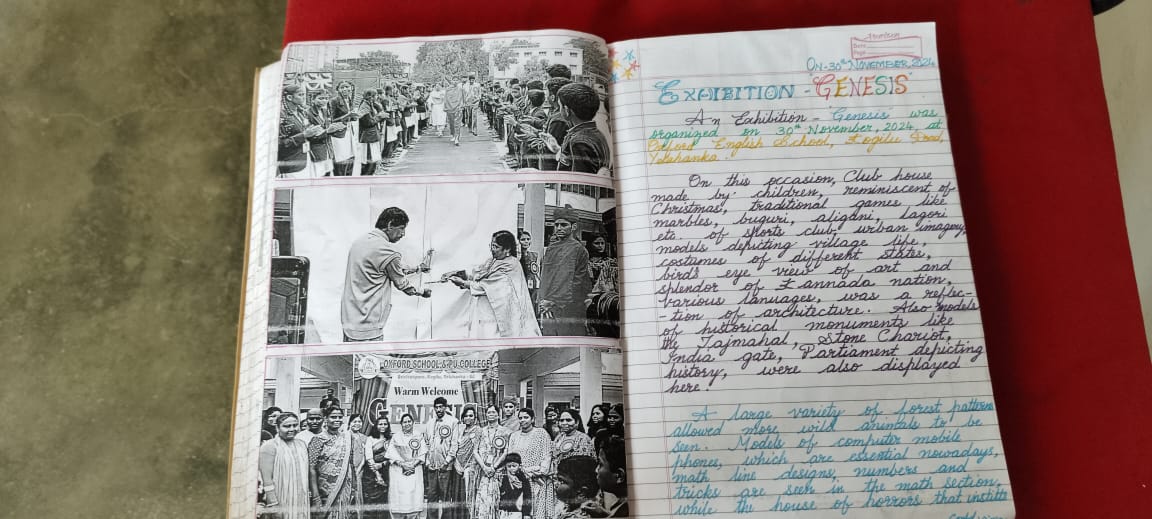 Date
Page
ON-30th NOVEMBER, 2024
EXHIBITION - "GENESIS"
An Exhibition - "Genesis" was
organized on 30th November, 2024, at
Oxford English School, Kogilu Road,
Yelahanka.
On this occasion, Club house
made by children, reminiscent of
Christmas, traditional games like
marbles, buguri, aligani, lagori
etc. of sports club, urban imagery,
models depicting village life,
costumes of different states,
bird's eye view of art and
splendor of Kannada nation,
various lanuages, was a reflec-
-tion of architecture. Also models
of historical monuments like
the Tajmahal, Stone Chariot,
India gate, Partiament depicting
history, were also displayed
here.
A large variety of forest patterns
allowed more wild animals to be
seen. Models of computer mobile
phones, which are essential nowadays,
math line designs, numbers and
tricks are seen in the math section,
while the house of horrors that
OXFORD SCHOOL & PU COLLEGE
Warm Welcome
GENESIS